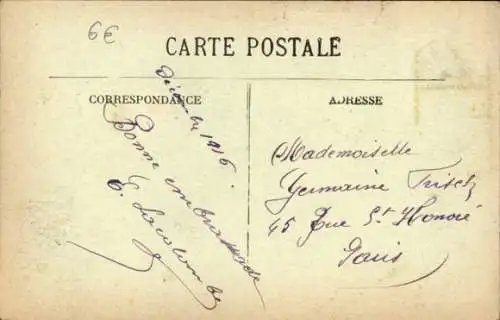 6€
CARTE POSTALE
CORRESPONDANCE
ADRESSE
Décembre 1916.
Bonne embrassade
E. Lacolombe
Mademoiselle
Germaine
45 Rue St Honoré
Paris